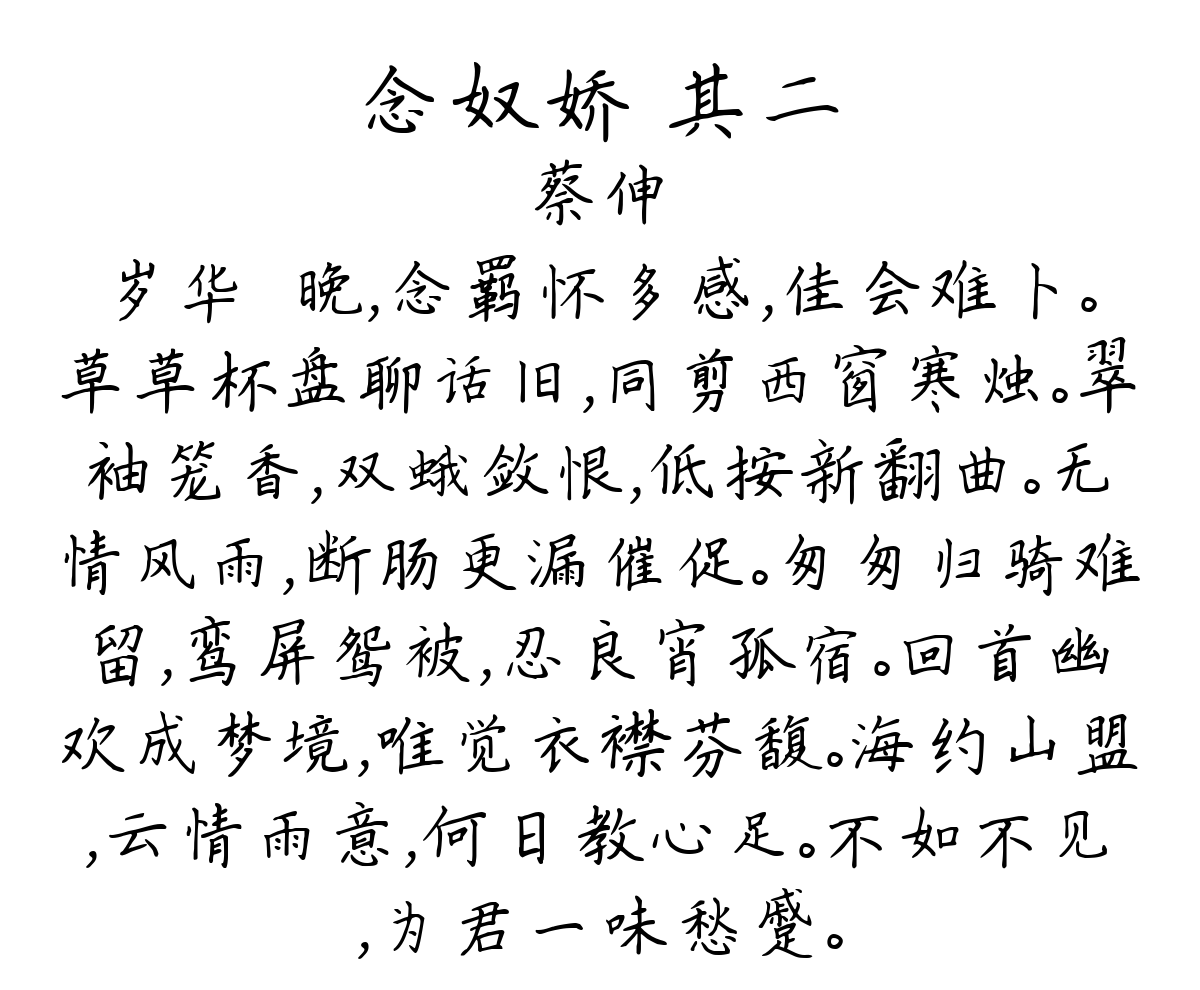 念奴娇 其二
蔡伸
岁华 晚,念羁怀多感,佳会难卜。
草草杯盘聊话旧,同剪西窗寒烛。翠
袖笼香,双蛾敛恨,低按新翻曲。无
情风雨,断肠更漏催促。匆匆归骑难
留,鸾屏鸳被,忍良宵孤宿。回首幽
欢成梦境,唯觉衣襟芬馥。海约山盟
,云情雨意,何日教心足。不如不见
,为君一味愁蹙。